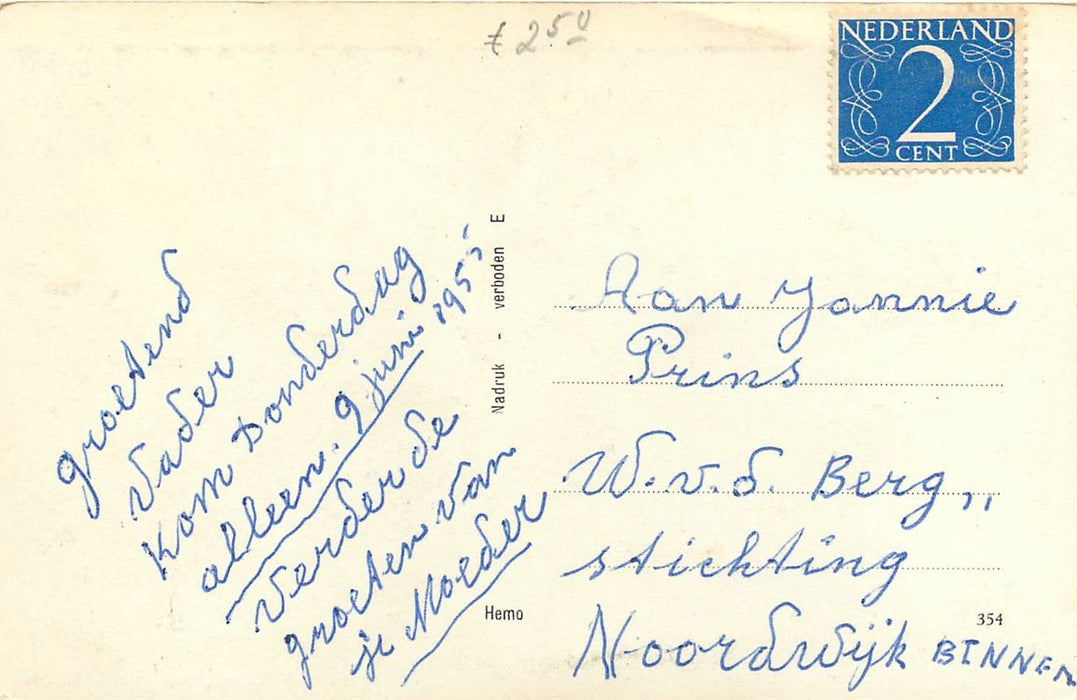 ƒ 2 50
NEDERLAND
2
CENT
groetend
Vader
Kom Donderdag
alleen. 9 juni 1955
Verder de
groeten van
je Moeder
Nadruk - verboden E
Hemo
Aan Jannie
Prins
W.v.d. Berg,,
stichting
Noordwijk BINNEN
354